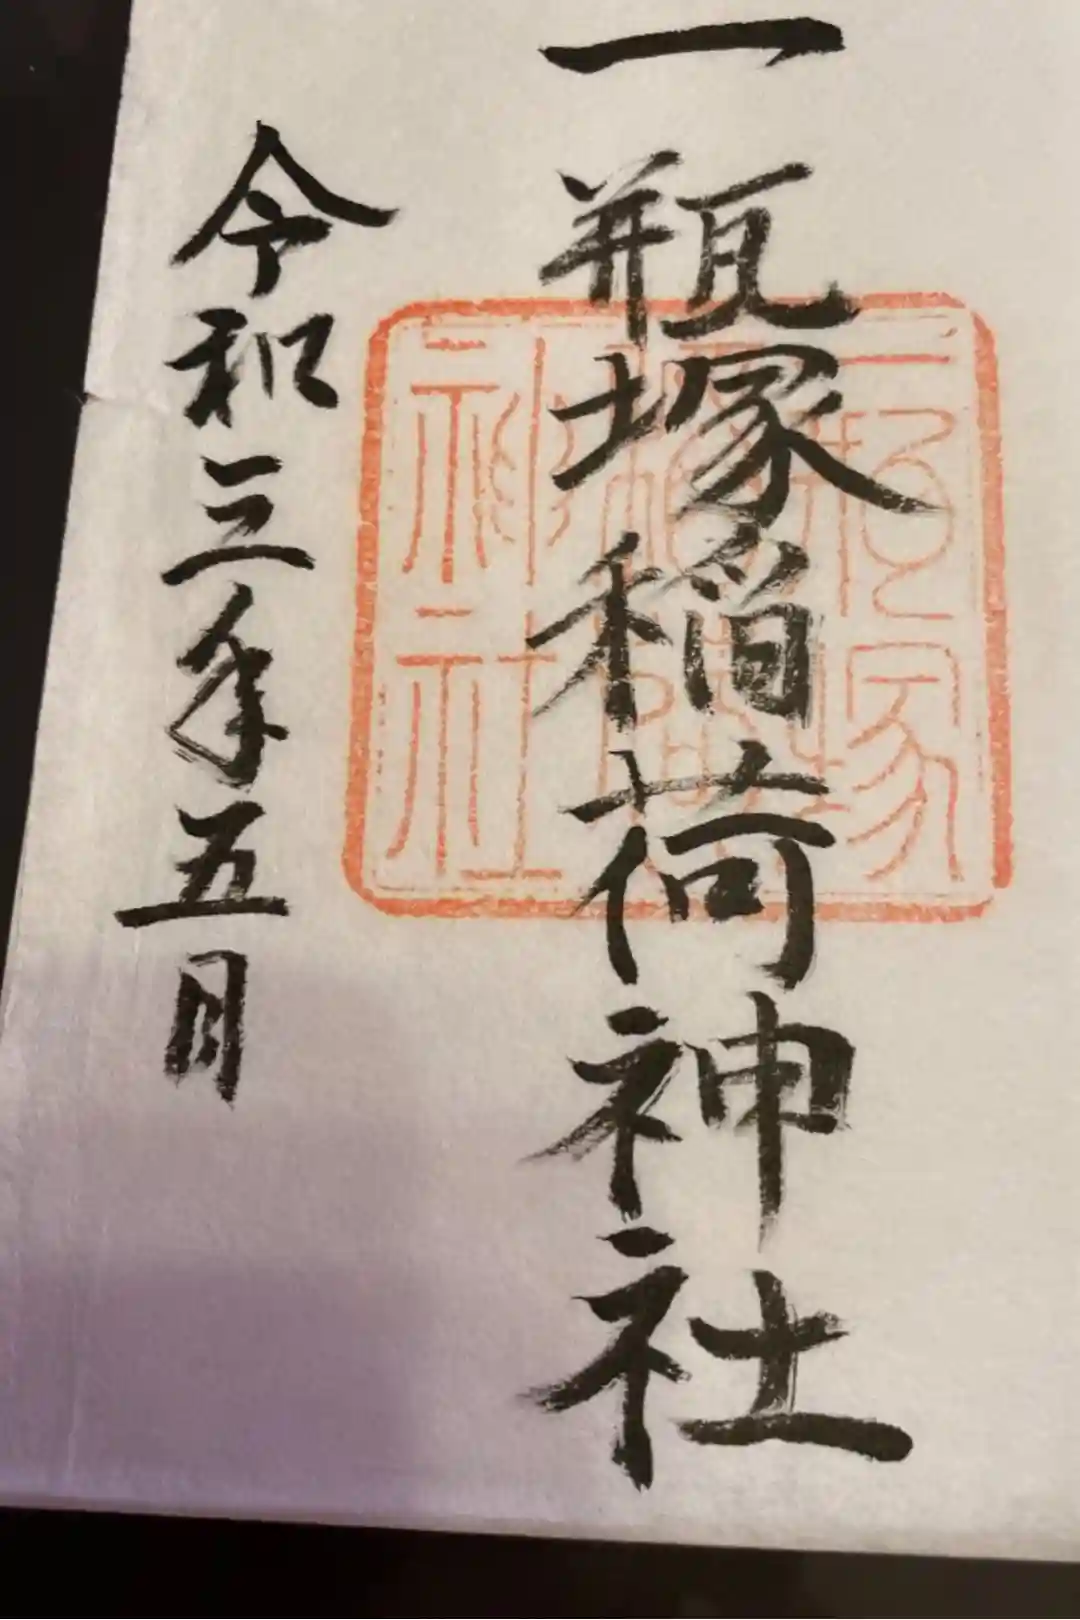 一瓶塚稲荷神社
令和三年五月
一瓶塚
稲荷神
社